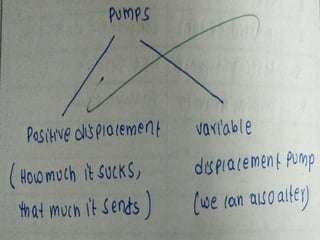 PUMPS
Positive displacement
(How much it sucks,
that much it sends)
variable
displacement pump
(we can also alter)